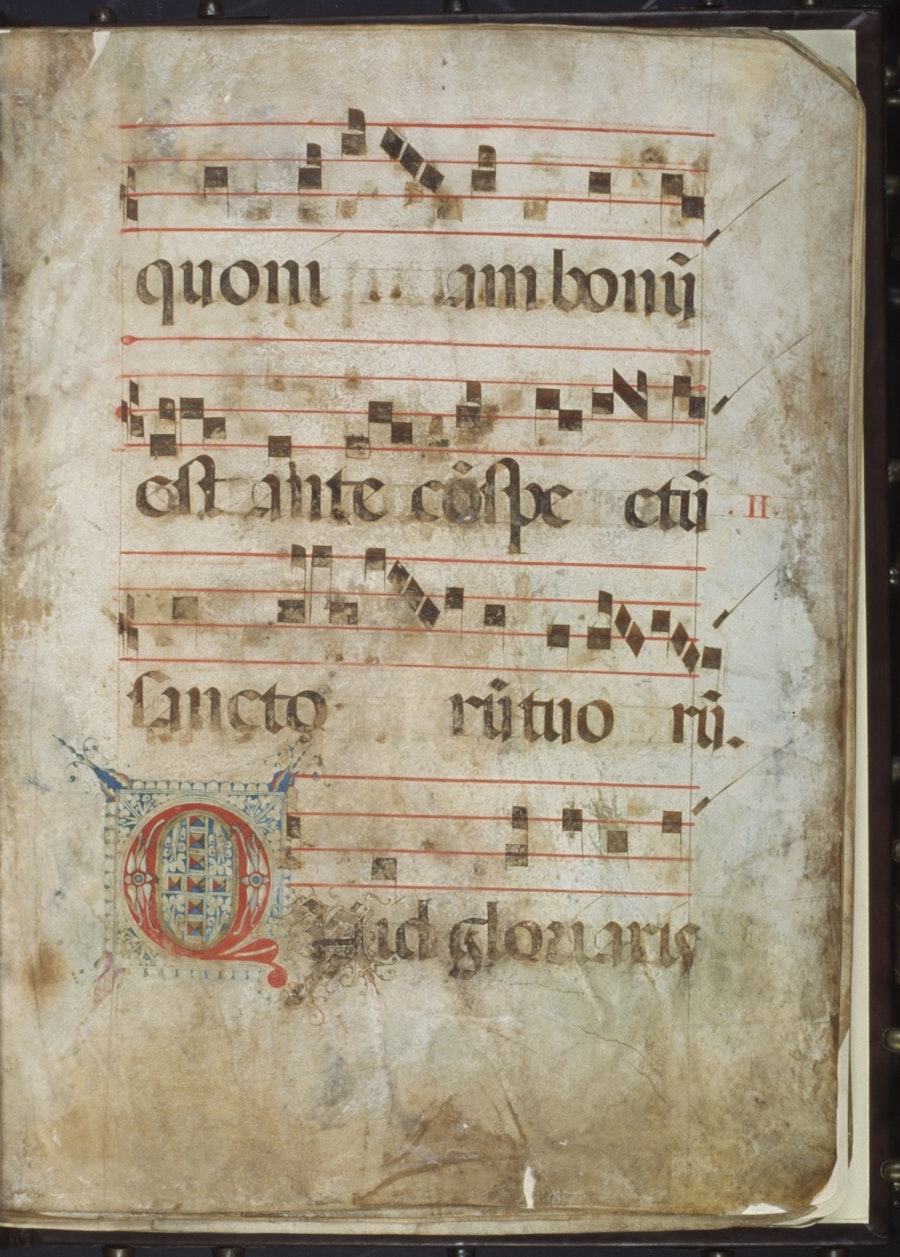 quoni am bonũ
est ante cõspe ctũ .II.
sancto rũ tuo rũ.
QUid gloriaris